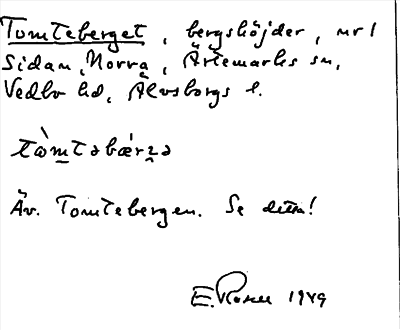 Tomteberget, bergshöjder, nr 1
Sidan, Norra, Ärtemarks sn,
Vedbo hd, Älvsborgs l.
tòm̲təbær̀z̲ə
Äv. Tomtebergen. Se detta!
E. Rosell 1949